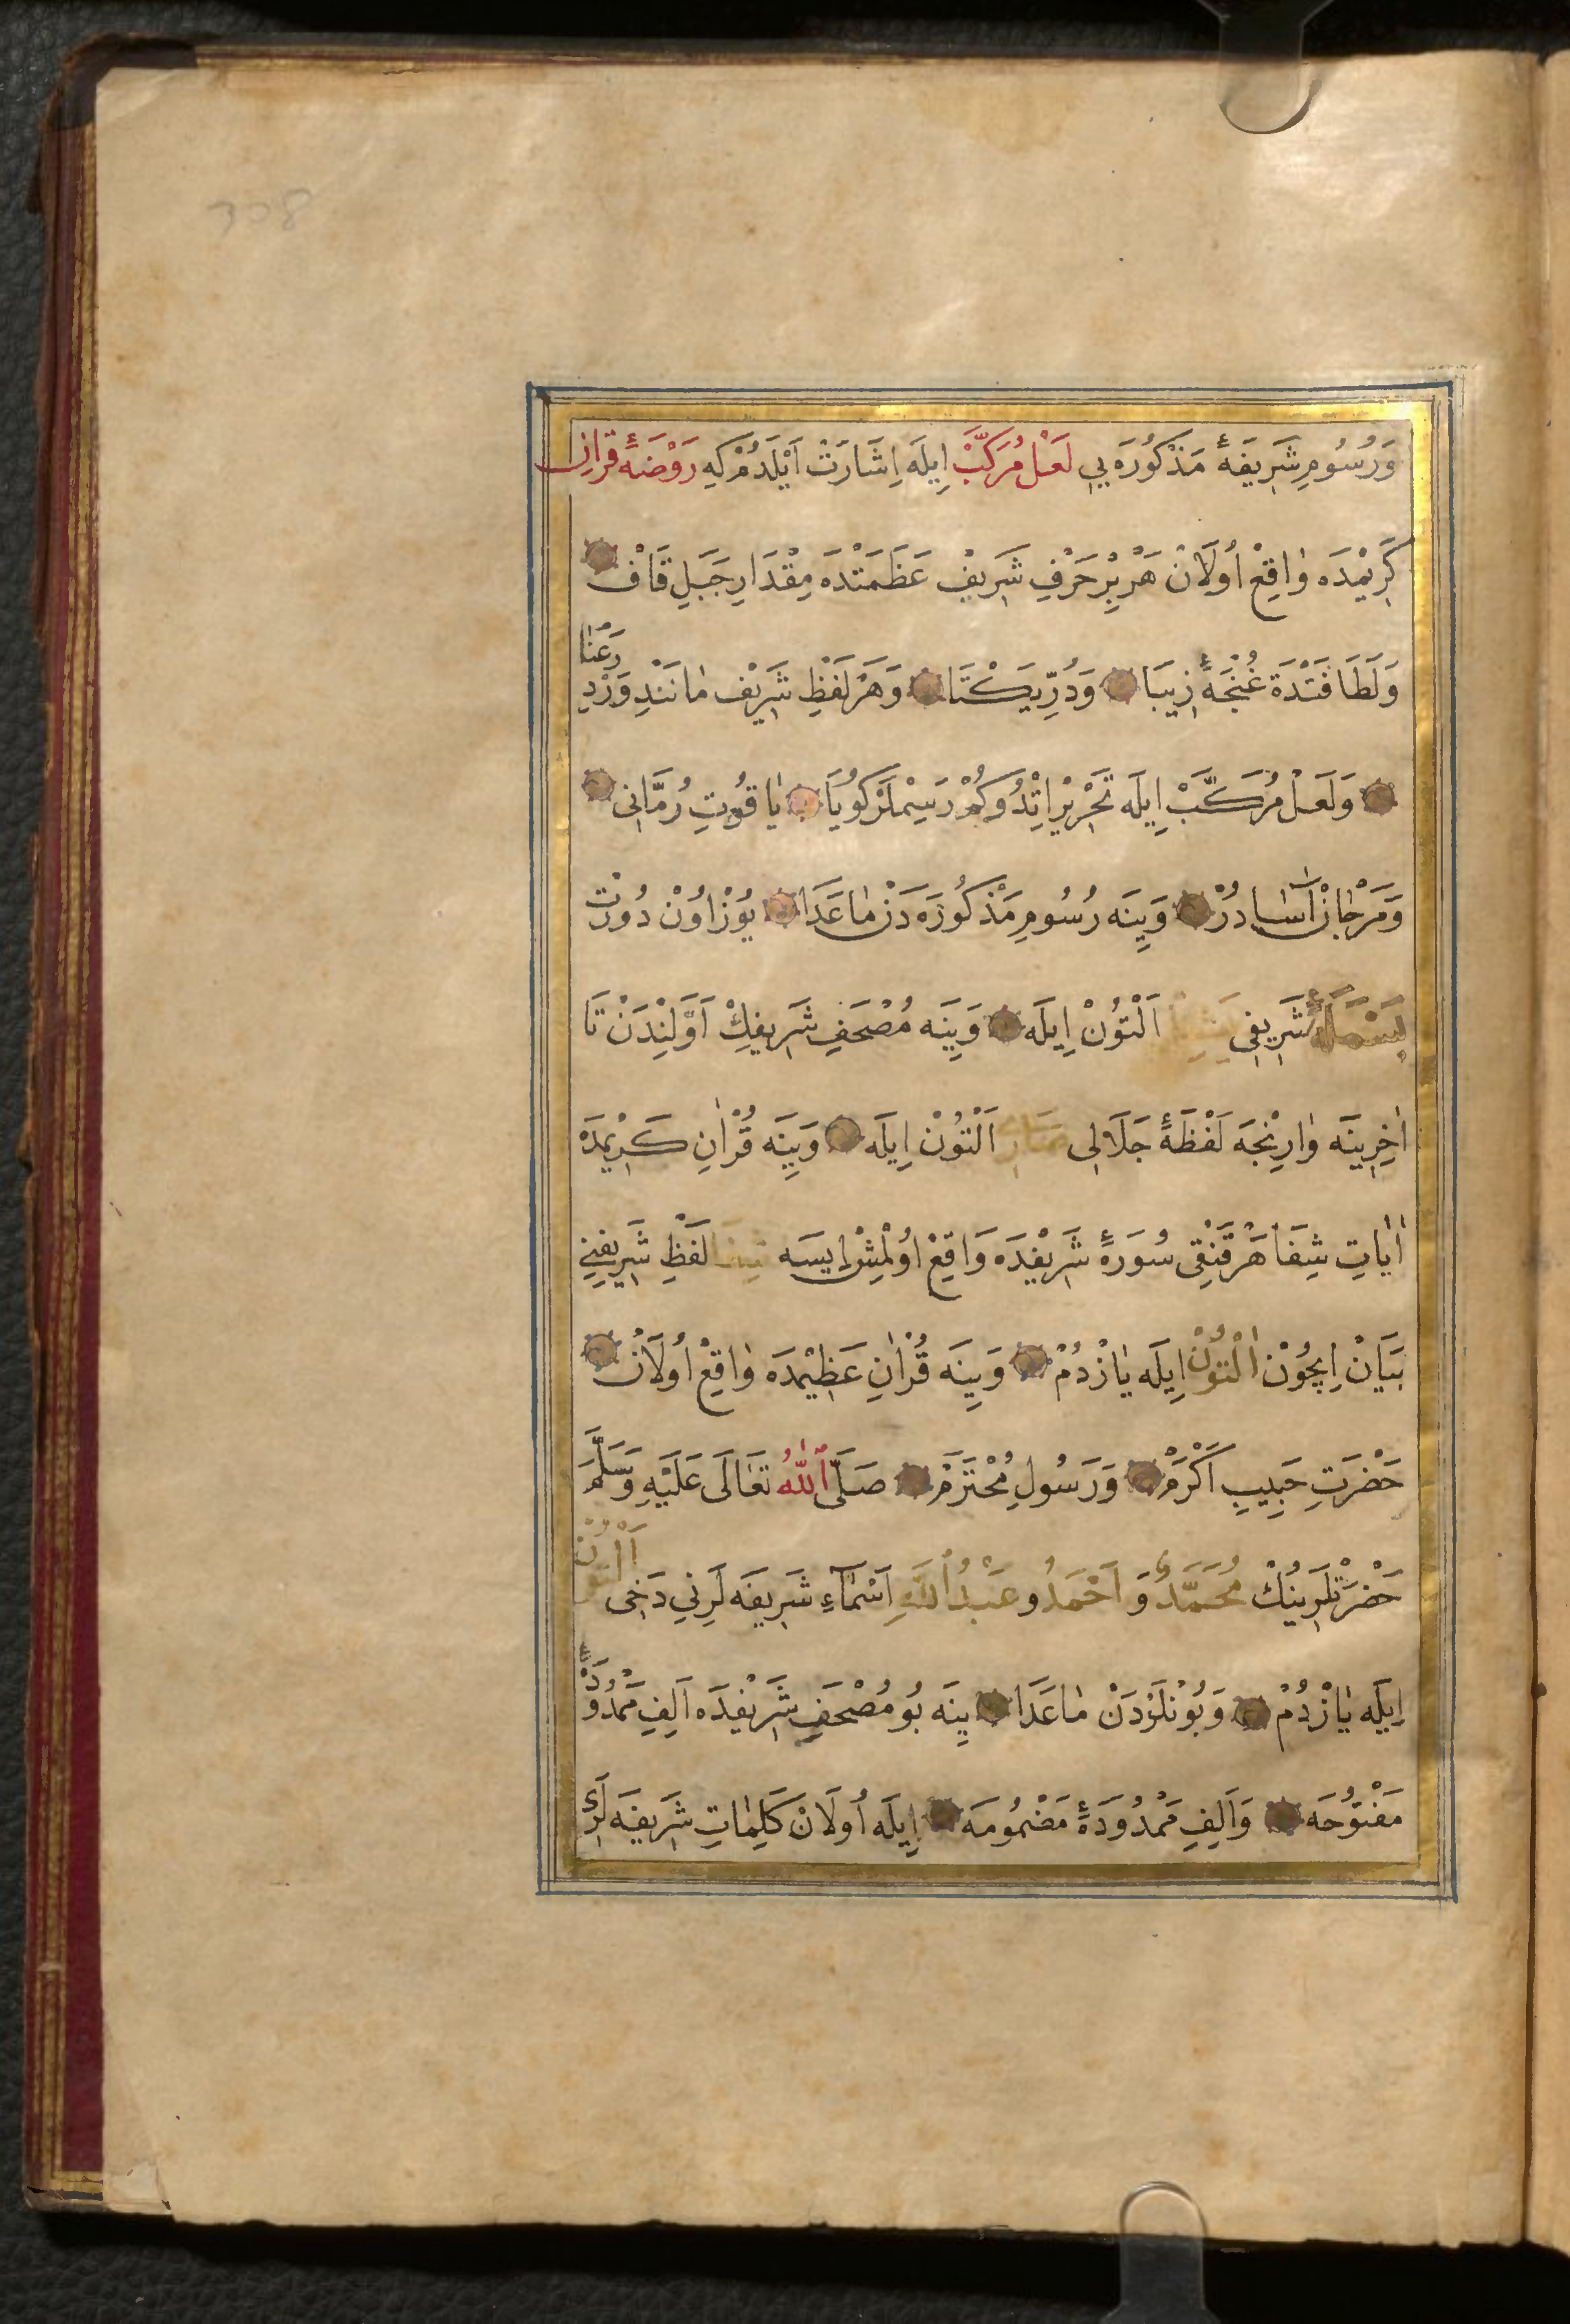 308
وَرُسُومِ شَرِيفَهٔ مَذْكُورَه يِي لَعْلِ مُرَكَّبْ اِيلَه اِشَارَتْ اَيْلَدُمْ كِه رَوْضَهٔ قرانِ
كَرِيْمْدَه وٰاقِعْ اُولَانْ هَرْ بِرْ حَرْفِ شَرِيفْ عَظَمَتْدَه مِقْدَارِ جَبَلِ قَافْ
وَلَطَافَتْدَة غُنْچَهٔ زِيبَا وَدُرِّ يَكْتَا وَهَرْ لَفْظِ شَرِيْف مٰانَنْدِ وَرْدِ رَعْنٰا
وَلَعْلِ مُرَكَّبْ اِيلَه تَحْرِيْرْ اِتْدُوكُمْ رَسِمْلَرْ كُويَا يٰاقُوتِ رُمَّانِى
وَمَرْجٰانْ اٰسٰا دُرْ وَيِنَه رُسُومِ مَذْكُورَه دَنْ مٰاعَدَا يُوْزْ اُونْ دُورْتْ
بَسْمَلَهٔ شَرِيفِى اَلْتُوْنْ اِيلَه وَيِنَه مُصْحَفِ شَرِيفِكْ اَوَّلِنْدَنْ تَا
اٰخِرِينَه وٰارِنْجَه لَفْظَهٔ جَلَالِى اَلْتُوْنْ اِيلَه وَيِنَه قُرْاٰنِ كَرِيْمِدَه
اٰيَاتِ شِفَا هَرْ قَنْقِى سُورَهٔ شَرِيْفَدَه وَاقِعْ اُوْلْمِشْ اِيسَه شِفَا لَفْظِ شَرِيفِنِي
بَيَانْ اِيچُوْنْ اَلْتُوْنْ اِيلَه يٰازْدُمْ وَيِنَه قُرْاٰنِ عَظِيْمْدَه وٰاقِعْ اُولَانْ
حَضْرَتِ حَبِيبِ اَكْرَمْ وَرَسُولِ مُحْتَرَمْ صَلَّى اللّٰهُ تَعَالَى عَلَيْهِ وَسَلَّمَ
حَضْرَتْلَرِينُكْ مُحَمَّدْ وَ اَحْمَدْ وعَبْدُ اللّٰهِ اَسْمَاءِ شَرِيفَه لَرِنِي دَخِى اَلْتُوْنْ
اِيلَه يٰازْدُمْ وَبُوْنْلَرْدَنْ مٰاعَدَا يِنَه بُو مُصْحَفِ شَرِيْفِدَه اَلِفِ مَمْدُودَهٔ
مَفْتُوْحَه وَاَلِفِ مَمْدُودَهٔ مَضْمُومَه اِيلَه اُولَانْ كَلِمَاتِ شَرِيفَه لَرِى